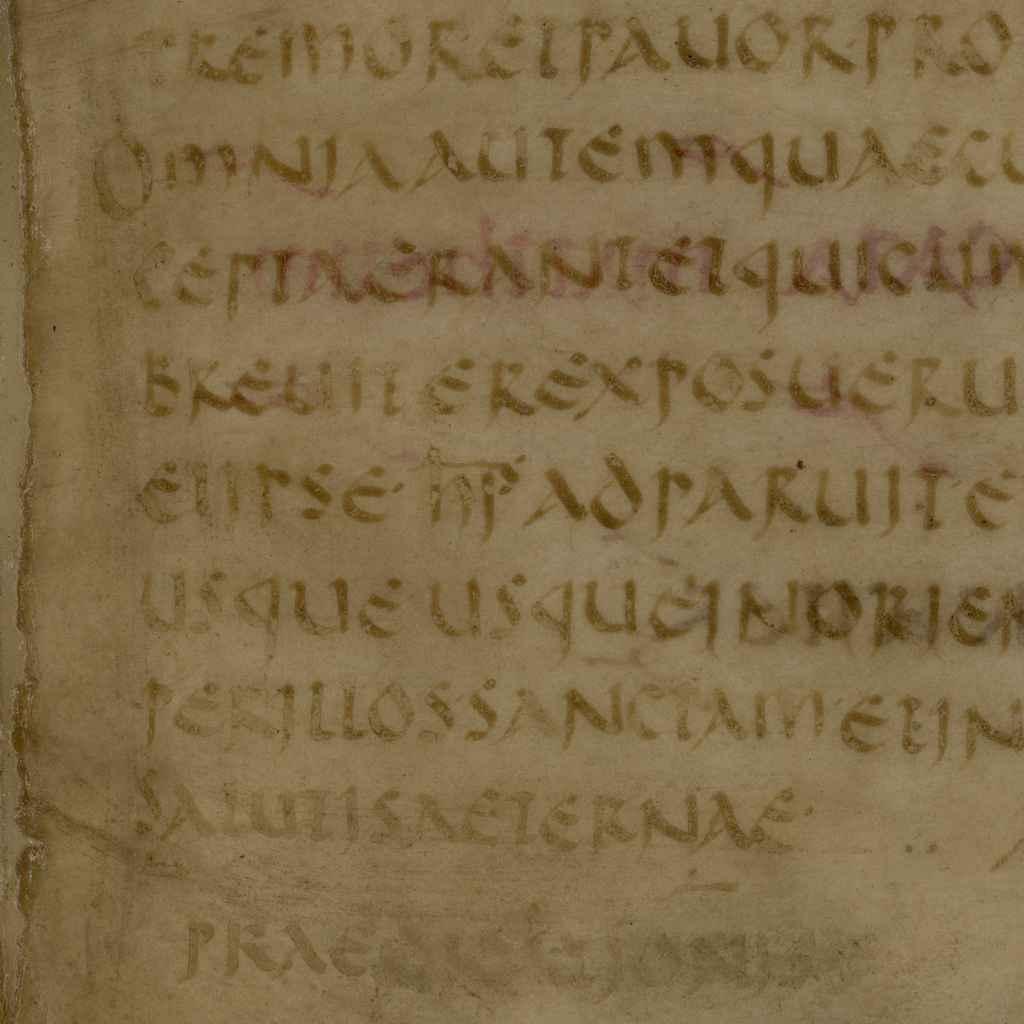 TREMOR ET PAUOR PRO
OMNIA AUTEM QUAECU
CEPTA ERANT ET QUI CUM
BREUITER EXPOSUERU
ET IPSE· h̅i̅s̅ ADPARUIT· E
USQUE USQUE IN ORIEN
PER ILLOS SANCTAM· ET IN
SALUTIS AETERNAE·